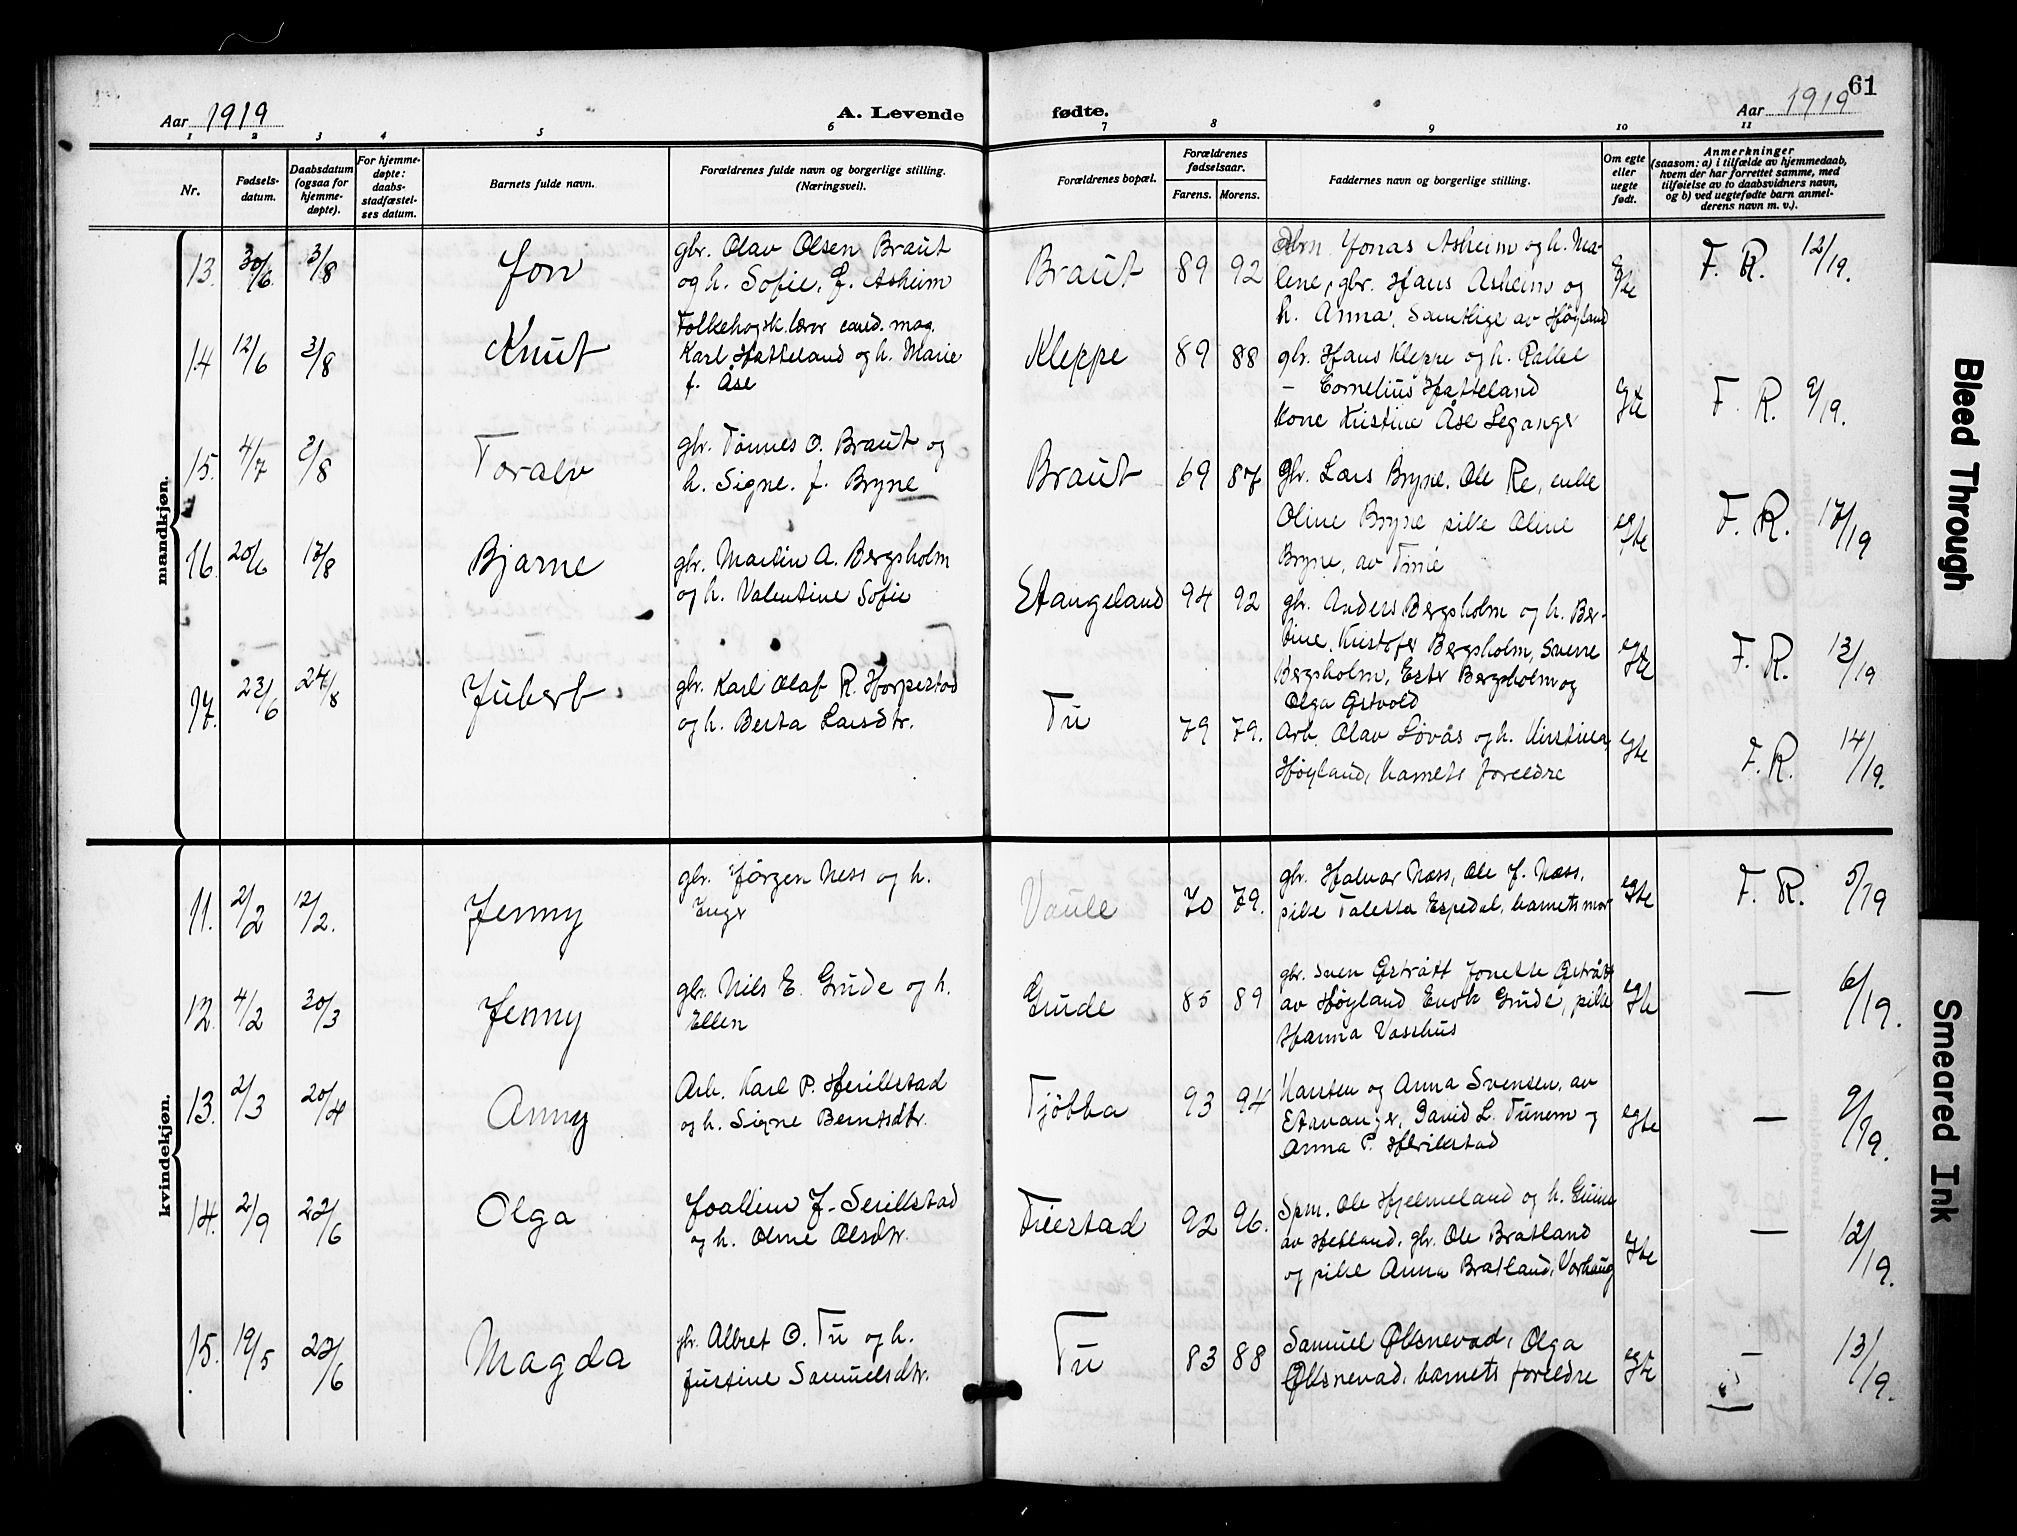 61
Aar 1919 A. Levende fødte. Aar 1919
1 2 3 4 5 6 7 8 9 10 11
Nr. Fødsels-datum. Daabsdatum (ogsaa for hjemme-døpte). For hjemme-døpte: daabs-stadfæstel-ses datum. Barnets fulde navn. Forældrenes fulde navn og borgerlige stilling. (Næringsvei). Forældrenes bopæl. Forældrenes fødselsaar. Farens. Morens. Faddernes navn og borgerlige stilling. Om egte eller uegte født. Anmerkninger (saasom: a) i tilfælde av hjemmedaab, hvem der har forrettet samme, med tilføielse av to daabsvidners navn, og b) ved uegtefødte barn anmel-derens navn m. v.).
mandkjøn.
13. 30/6 3/8 Jon gbr. Olav Olsen Braut
og h. Sofie, f. Asheim
Braut 89 92 Jonas Asheim og h. Ma-
lene, gbr. Hans Asheim og
h. Anna, Samtlige av Høyland
egte F. R. 12/19.
14 12/6 3/8 Knut Folkehogsk. lærer cand. mag.
Karl Hatteland og h. Marie
f. Åse
Kleppe 89 88 gbr. Hans Kleppe og h. Rallel
– Cornelius Hatteland
Kone Kristine Åse Leganger
egte F. R. 9/19.
15. 4/7 3/8 Toralv gbr. Tønnes O. Braut og
h. Signe. f. Bryne
Braut 69 87 Gbr. Lars Bryne, Ole Re, enke
Oline Bryne pike Oline
Bryne, av Time
egte F. R. 17/19
16. 20/6 17/8 Bjarne gbr. Martin A. Bergsholm
og h. Valentine Sofie
Stangeland 94 92 gbr. Anders Bergsholm og h. Ber-
tine, Kristofer Bergsholm, Sverre
Bergsholm, Ester Bergsholm og
Olga Østvold
egte F. R. 13/19
17. 23/6 24/8 Jubert gbr. Karl Olaf R. Horpestad
og h. Berta Larsdtr.
Tu 79 79. Arb. Olav Lovås og h. Kirstina,
Høyland, barnets foreldre
egte F. R. 14/19.
kvindekjøn.
11. 2/2 12/2. Jenny gbr. Jørgen Ness og h.
Inger
Vaule 70 79. gbr. Halvar Næss, Ole J. Næss,
pike Taletta Espedal, barnets mor
egte F. R. 5/19
12. 4/2 30/3 Jenny gbr. Nils E. Grude og h.
Ellen
Grude 85 89 gbr. Sven Østrått Jonette Østrått
av Høyland Enok Grude, pike
Hanna Vasshus
egte — 6/19.
13. 2/3 20/4 Anny Arb. Karl P. Herikstad
og h. Signe Berntsdtr.
Tjøtta 93 94 Karsten og Anna Svensen, av
Stavanger, David L. Tunem og
Anna P. Herikstad
egte — 9/19.
14. 2/9 22/6 Olga Joakim J. Serikstad
og h. Oline Olsdtr.
92 96. Spm. Ole Hjelmeland og h.
av Hetland, gbr. Ole Bratland
og pike Anna Bratland, Varhaug
egte — 12/19.
15. 19/5 22/6 Magda gbr. Albret O. Tu og h.
Justine Samuelsdtr.
Tu 83 88 Samuel Øksnevad, Olga
Øksnevad, barnets foreldre
egte — 13/19.
Bleed Through
Smeared Ink